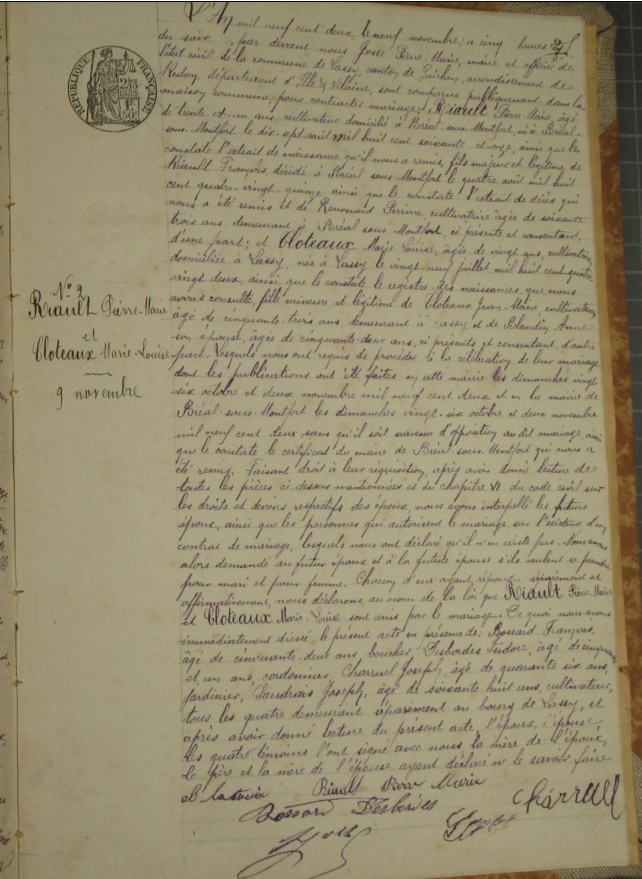 RÉPUBLIQUE FRANÇAISE
N° 2
Riault Pierre-Marie
et
Cloteaux Marie-Louise
9 novembre
L'An mil neuf cent deux, le neuf novembre, à cinq heures
du soir, par devant nous José Pierre Marie, maire et officier de
l'état civil de la commune de Lassy, canton de Guichen, arrondissement de
Redon, département d'Ille & Vilaine, sont comparus publiquement dans la
maison commune, pour contracter mariage: Riault Pierre Marie, âgé
de trente-et-un ans, cultivateur domicilié à Bréal-sous-Montfort, né à Bréal-
sous-Montfort le dix-sept août mil huit cent soixante-et-onze, ainsi que le
constate l'extrait de naissance qu'il nous a remis, fils majeur et légitime de
Riault François, décédé à Bréal sous Montfort le quatre août mil huit
cent quatre-vingt-quinze ainsi que le constate l'extrait de décès qui
nous a été remis et de Renouard Perrine, cultivatrice âgée de soixante
trois ans, demeurant à Bréal sous Montfort, ci présente et consentant,
d'une part; et Cloteaux Marie Louise, âgée de vingt ans, cultivatrice
domiciliée à Lassy, née à Lassy le vingt neuf juillet mil huit cent quatre
vingt deux, ainsi que le constate le registre des naissances que nous
avons consulté, fille mineure et légitime de Cloteaux Jean-Marie, cultivateur
âgé de cinquante-trois ans, demeurant à Lassy et de Blandin Anne
son épouse, âgée de cinquante-deux ans, ci présents et consentant, d'autre
part. Lesquels nous ont requis de procéder à la célébration de leur mariage
dont les publications ont été faites en cette mairie les dimanches vingt
six octobre et deux novembre mil neuf cent deux et en la mairie de
Bréal-sous-Montfort les dimanches vingt-six octobre et deux novembre
mil neuf cent deux sans qu'il soit survenu d'opposition audit mariage, ainsi
que le constate le certificat du maire de Bréal-sous-Montfort qui nous a
été remis. Faisant droit à leur réquisition, après avoir donné lecture de
toutes les pièces ci-dessus mentionnées et du chapitre VI du code civil sur
les droits et devoirs respectifs des époux, nous avons interpellé les futurs
époux, ainsi que les personnes qui autorisent le mariage sur l'existence d'un
contrat de mariage, lesquels nous ont déclaré qu'il n'en existe pas. Nous avons
alors demandé au futur époux et à la future épouse s'ils veulent se prendre
pour mari et pour femme. Chacun d'eux ayant répondu séparément et
affirmativement, nous déclarons, au nom de la loi que Riault Pierre-Marie
et Cloteaux Marie-Louise sont unis par le mariage. De quoi nous avons
immédiatement dressé le présent acte en présence de: Bossard François,
âgé de cinquante-deux ans, boucher, Desbordes Isidore, âgé de cinquante
et un ans, cordonnier, Charruel Joseph, âgé de quarante six ans,
jardinier, Gaudrais Joseph, âgé de soixante huit ans, cultivateur,
tous les quatre demeurant séparément au bourg de Lassy, et
après avoir donné lecture du présent acte, l'époux, l'épouse,
les quatre témoins l'ont signé avec nous la mère de l'époux,
le père et la mère de l'épouse ayant déclaré ne le savoir faire
Riault Pierre Marie
Charruel
Bossard Desbordes